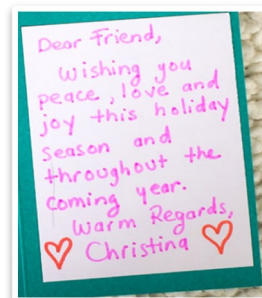 Dear Friend,
Wishing you
peace, love and
joy this holiday
season and
throughout the
coming year.
Warm Regards,
Christina